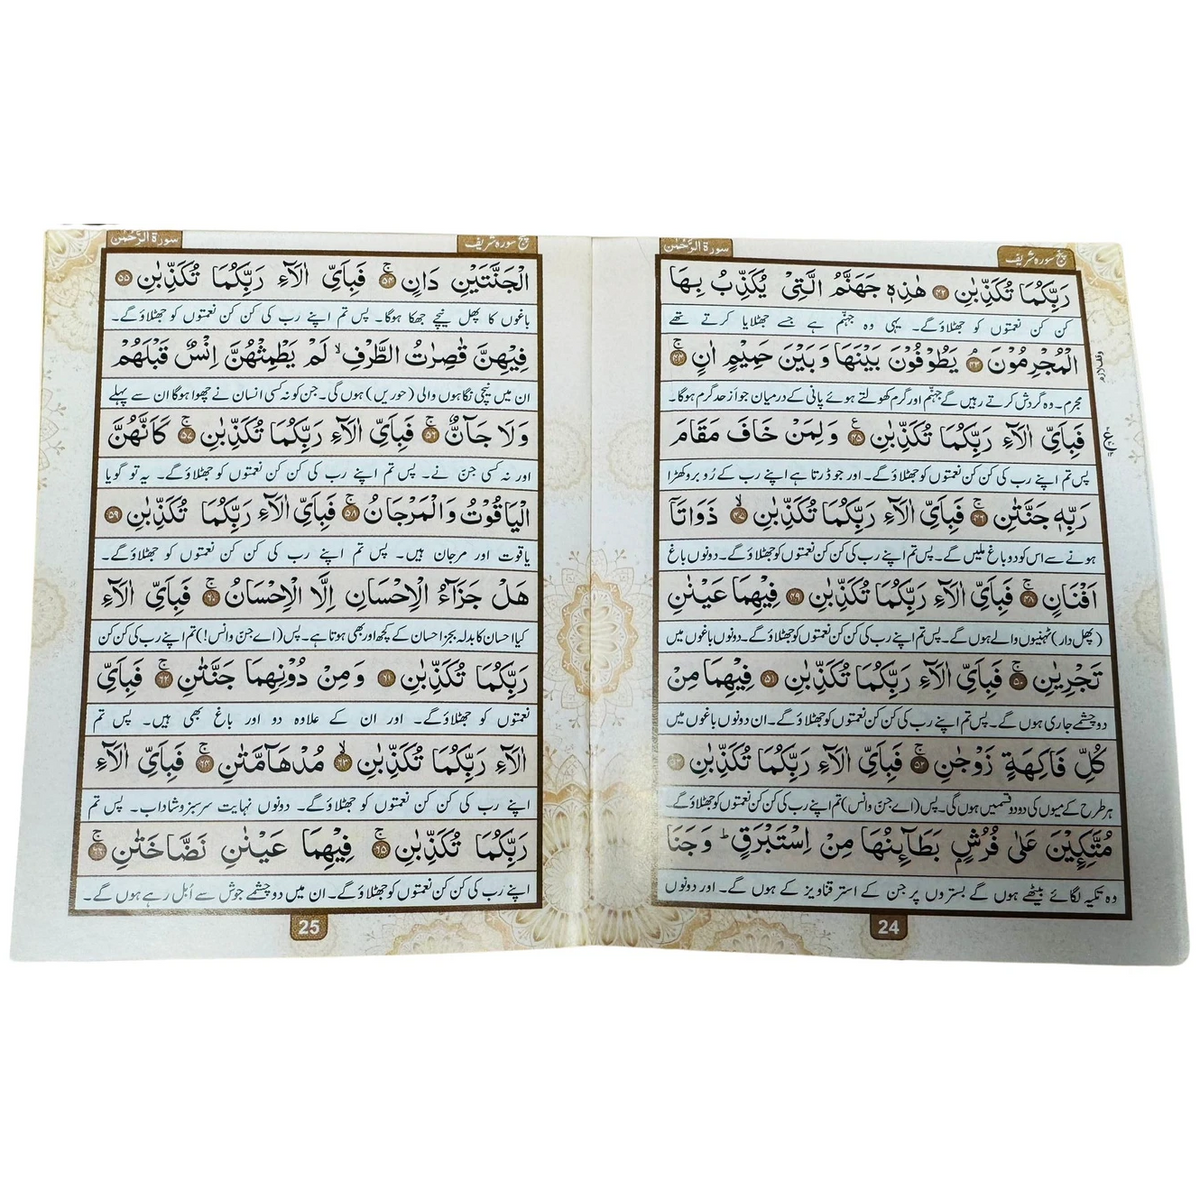 پنج سورہ شریف
سورۃ الرَّحْمٰن
رَبِّكُمَا تُكَذِّبٰنِ ۴۲ هٰذِهٖ جَهَنَّمُ الَّتِیْ یُكَذِّبُ بِهَا
کن کن نعمتوں کو جھٹلاؤ گے۔ یہی وہ جہنّم ہے جسے جھٹلایا کرتے تھے
الْمُجْرِمُوْنَ ۘ ۴۳ یَطُوْفُوْنَ بَیْنَهَا وَ بَیْنَ حَمِیْمٍ اٰنٍ ۚ ۴۴
وقف لازم
مجرم۔ وہ گردش کرتے رہیں گے جہنّم اور گرم کھولتے ہوئے پانی کے درمیان جو از حد گرم ہوگا۔
فَبِاَیِّ اٰلَآءِ رَبِّكُمَا تُكَذِّبٰنِ ۠ ۴۵ وَ لِمَنْ خَافَ مَقَامَ
پس تم اپنے رب کی کن کن نعمتوں کو جھٹلاؤ گے۔ اور جو ڈرتا ہے اپنے رب کے رُو بروکھڑا
رَبِّهٖ جَنَّتٰنِ ۚ ۴۶ فَبِاَیِّ اٰلَآءِ رَبِّكُمَا تُكَذِّبٰنِ ۙ ۴۷ ذَوَاتَاۤ
ہونے سے اس کو دو باغ ملیں گے۔ پس تم اپنے رب کی کن کن نعمتوں کو جھٹلاؤ گے۔ دونوں باغ
اَفْنَانٍ ۚ ۴۸ فَبِاَیِّ اٰلَآءِ رَبِّكُمَا تُكَذِّبٰنِ ۴۹ فِیْهِمَا عَیْنٰنِ
(پھل دار) ٹہنیوں والے ہوں گے۔ پس تم اپنے رب کی کن کن نعمتوں کو جھٹلاؤ گے۔ دونوں باغوں میں
تَجْرِیٰنِ ۚ ۵۰ فَبِاَیِّ اٰلَآءِ رَبِّكُمَا تُكَذِّبٰنِ ۵۱ فِیْهِمَا مِنْ
دو چشمے جاری ہوں گے۔ پس تم اپنے رب کی کن کن نعمتوں کو جھٹلاؤ گے۔ ان دونوں باغوں میں
كُلِّ فَاكِهَةٍ زَوْجٰنِ ۚ ۵۲ فَبِاَیِّ اٰلَآءِ رَبِّكُمَا تُكَذِّبٰنِ ۵۳
ہر طرح کے میووں کی دو دو قسمیں ہوں گی۔ پس (اے جنّ وانس) تم اپنے رب کی کن کن نعمتوں کو جھٹلاؤ گے۔
مُتَّكِـِٕیْنَ عَلٰى فُرُشٍۭ بَطَآىِٕنُهَا مِنْ اِسْتَبْرَقٍ ؕ وَ جَنَا
وہ تکیہ لگائے بیٹھے ہوں گے بستروں پر جن کے استر قناویز کے ہوں گے۔ اور دونوں
24
پنج سورہ شریف
سورۃ الرَّحْمٰن
الْجَنَّتَیْنِ دَانٍ ۚ ۵۴ فَبِاَیِّ اٰلَآءِ رَبِّكُمَا تُكَذِّبٰنِ ۵۵
باغوں کا پھل نیچے جھکا ہوگا۔ پس تم اپنے رب کی کن کن نعمتوں کو جھٹلاؤ گے۔
فِیْهِنَّ قٰصِرٰتُ الطَّرْفِ ۙ لَمْ یَطْمِثْهُنَّ اِنْسٌ قَبْلَهُمْ
ان میں نیچی نگاہوں والی (حوریں) ہوں گی۔ جن کو نہ کسی انسان نے چھوا ہوگا ان سے پہلے
وَ لَا جَآنٌّ ۚ ۵۶ فَبِاَیِّ اٰلَآءِ رَبِّكُمَا تُكَذِّبٰنِ ۚ ۵۷ كَاَنَّهُنَّ
اور نہ کسی جنّ نے۔ پس تم اپنے رب کی کن کن نعمتوں کو جھٹلاؤ گے۔ یہ تو گویا
الْیَاقُوْتُ وَ الْمَرْجَانُ ۚ ۵۸ فَبِاَیِّ اٰلَآءِ رَبِّكُمَا تُكَذِّبٰنِ ۵۹
یاقوت اور مرجان ہیں۔ پس تم اپنے رب کی کن کن نعمتوں کو جھٹلاؤ گے۔
هَلْ جَزَآءُ الْاِحْسَانِ اِلَّا الْاِحْسَانُ ۚ ۶۰ فَبِاَیِّ اٰلَآءِ
کیا احسان کا بدلہ بجز احسان کے کچھ اور بھی ہوتا ہے۔ پس (اے جنّ وانس!) تم اپنے رب کی کن کن
رَبِّكُمَا تُكَذِّبٰنِ ۶۱ وَ مِنْ دُوْنِهِمَا جَنَّتٰنِ ۚ ۶۲ فَبِاَیِّ
نعمتوں کو جھٹلاؤ گے۔ اور ان کے علاوہ دو اور باغ بھی ہیں۔ پس تم
اٰلَآءِ رَبِّكُمَا تُكَذِّبٰنِ ۙ ۶۳ مُدْهَآمَّتٰنِ ۚ ۶۴ فَبِاَیِّ اٰلَآءِ
اپنے رب کی کن کن نعمتوں کو جھٹلاؤ گے۔ دونوں نہایت سرسبز و شاداب۔ پس تم
رَبِّكُمَا تُكَذِّبٰنِ ۚ ۶۵ فِیْهِمَا عَیْنٰنِ نَضَّاخَتٰنِ ۚ ۶۶
اپنے رب کی کن کن نعمتوں کو جھٹلاؤ گے۔ ان میں دو چشمے جوش سے اُبل رہے ہوں گے۔
25